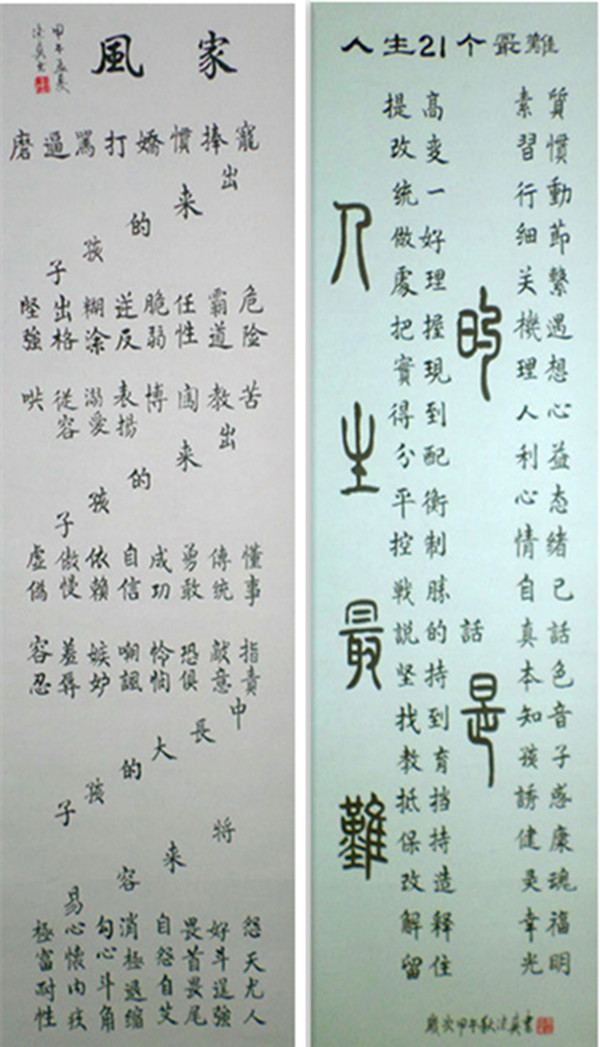 家風
甲午孟夏
寵捧慣嬌打罵逼磨
出来的孩子
危险 霸道 任性 脆弱 逆反 糊涂 出格 堅強
苦 教 闖 博 表揚 溺愛 從容 哄
出来的孩子
懂事 傳統 勇敢 成功 自信 依賴 傲慢 虛偽
指責 敵意 恐惧 怜悯 嘲諷 嫉妒 羞辱 容忍
中長大的孩子
将来容易
怨天尤人
好斗逞強
畏首畏尾
自怨自艾
消極退缩
勾心斗角
心懷内疚
極富耐性
人生21个最難
人生最難
提高
改變
統一
做好
處理
把握
實現
得到
分配
平衡
控制
戰勝
説的
堅持
找到
教育
抵挡
保持
改造
解释
留住
的話是
素質
習慣
行動
細節
关繫
機遇
理想
人心
利益
心态
情緒
自己
真話
本色
知音
孩子
誘惑
健康
灵魂
幸福
光明
歲次甲午秋